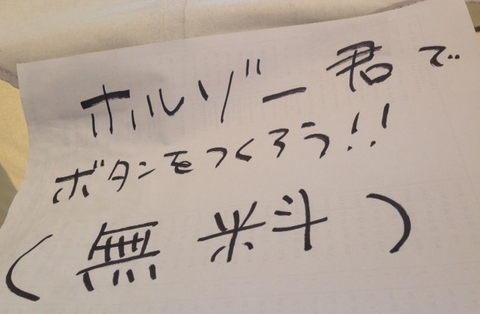 ホルゾー君で
ボタンをつくろう!!
(無料)